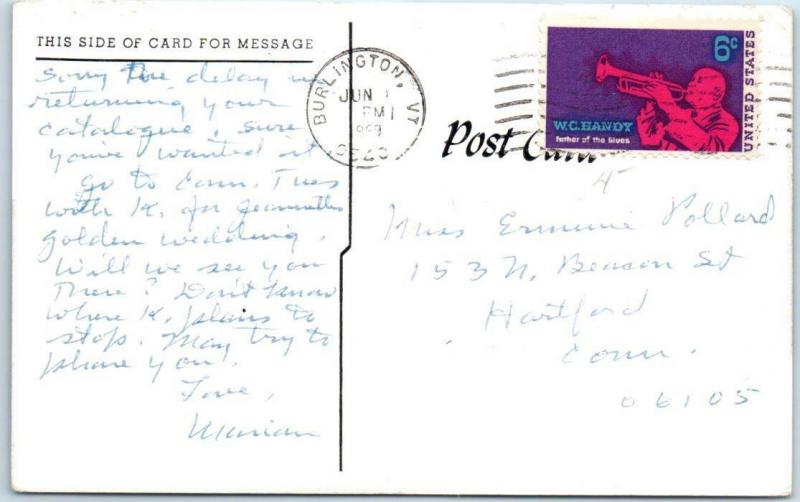 THIS SIDE OF CARD FOR MESSAGE
Sorry the delay in
returning your
catalogue, sure
you've wanted it
Go to Conn. Tues
with K. for Jeannette's
golden wedding.
Will we see you
there? Don't know
where K. plans to
stop. May try to
phone you!
Love,
Marian
BURLINGTON, VT
JUN
PM
1969
6¢
UNITED STATES
W.C. HANDY
father of the blues
Post Card
4
Miss Erminie Pollard
153 N. Beacon St
Hartford
Conn.
06105